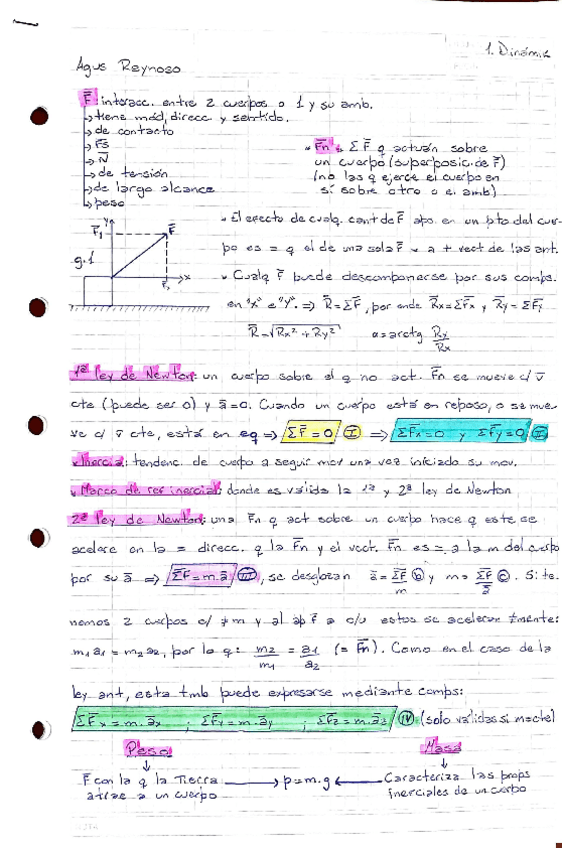 1. Dinámica
Agus Reynoso
F: interacc. entre 2 cuerpos o 1 y su amb.
→ tiene mód, direcc y sentido.
→ de contacto
→ FS
→ N
→ de tensión
→ de largo alcance
→ peso
Fn: ΣF q actúan sobre
un cuerpo (superposic. de F)
(no las q ejerce el cuerpo en
sí sobre otro o el amb)
El efecto de cualq. cant de F apo en un pto del cuer-
po es = q el de una sola F
+ vect de las ant.
Cualq F puede descomponerse por sus comps.
en "x" e "y". ⇒ R=ΣF, por ende Rx=ΣFx y Ry=ΣFy
R=√Rx²+Ry² α=arctg Ry/Rx
y
F1
F
g.1
x
1ª ley de Newton: un cuerpo sobre el q no act. Fn se mueve c/ v
cte (puede ser 0) y a=0. Cuando un cuerpo está en reposo, o se mue-
ve c/ v cte, está en eq ⇒ ΣF=0 (I) ⇒ ΣFx=0 y ΣFy=0
Inercia: tendenc. de cuerpo a seguir mov una vez iniciado su mov.
Marco de ref inercial: donde es válida la 1ª y 2ª ley de Newton
2ª ley de Newton: una Fn q act sobre un cuerpo hace q este se
acelere en la = direcc. q la Fn y el vect. Fn es = a la m del cuerpo
por su a ⇒ ΣF=m.a (III), se desglozan a=ΣF/m (b) y m=ΣF/a (c). Si te-
nemos 2 cuerpos c/ ≠ m y al ap F a c/u estos se aceleran ≠mente:
m1a1=m2a2, por lo q: m2/m1 = a1/a2 (= Fn). Como en el caso de la
ley ant, esta tmb puede expresarse mediante comps:
ΣFx=m.ax ; ΣFy=m.ay ; ΣFz=m.az (IV) (solo válidas si m cte)
Peso
Masa
F con la q la Tierra
atrae a un cuerpo
p=m.g
Caracteriza las props
inerciales de un cuerpo